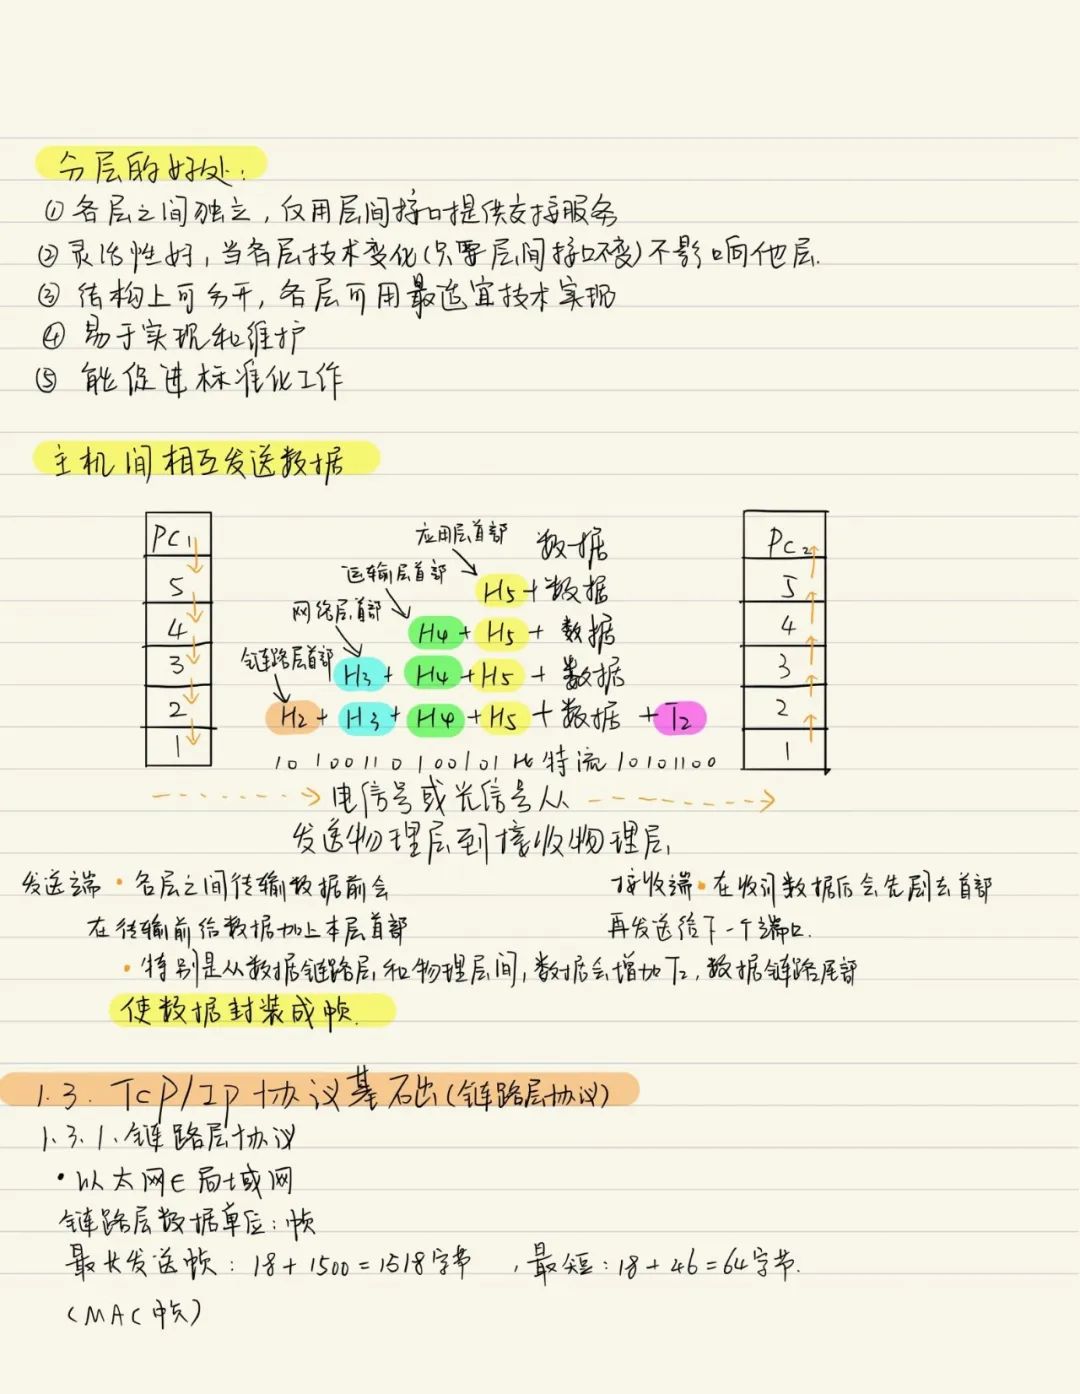 分层的好处：
① 各层之间独立，仅用层间接口提供交接服务
② 灵活性好，当各层技术变化(只要层间接口不变)不影响他层.
③ 结构上可分开，各层可用最适宜技术实现
④ 易于实现和维护
⑤ 能促进标准化工作
主机间相互发送数据
PC1
5
4
3
2
1
应用层首部 数据
运输层首部 H5+数据
网络层首部 H4+H5+数据
链路层首部 H3+H4+H5+数据
H2+H3+H4+H5+数据+T2
10100110100101比特流10101100
PC2
5
4
3
2
1
电信号或光信号从
发送物理层到接收物理层
发送端·各层之间传输数据前会
在传输前给数据加上本层首部
接收端·在收到数据后会先剥去首部
再发送给下一个端口.
·特别是从数据链路层和物理层间，数据会增加T2，数据链路尾部
使数据封装成帧.
1.3. TCP/IP协议基础(链路层协议)
1.3.1.链路层协议
·以太网∈局域网
链路层数据单位：帧
最长发送帧：18+1500=1518字节 ，最短：18+46=64字节.
(MAC帧)